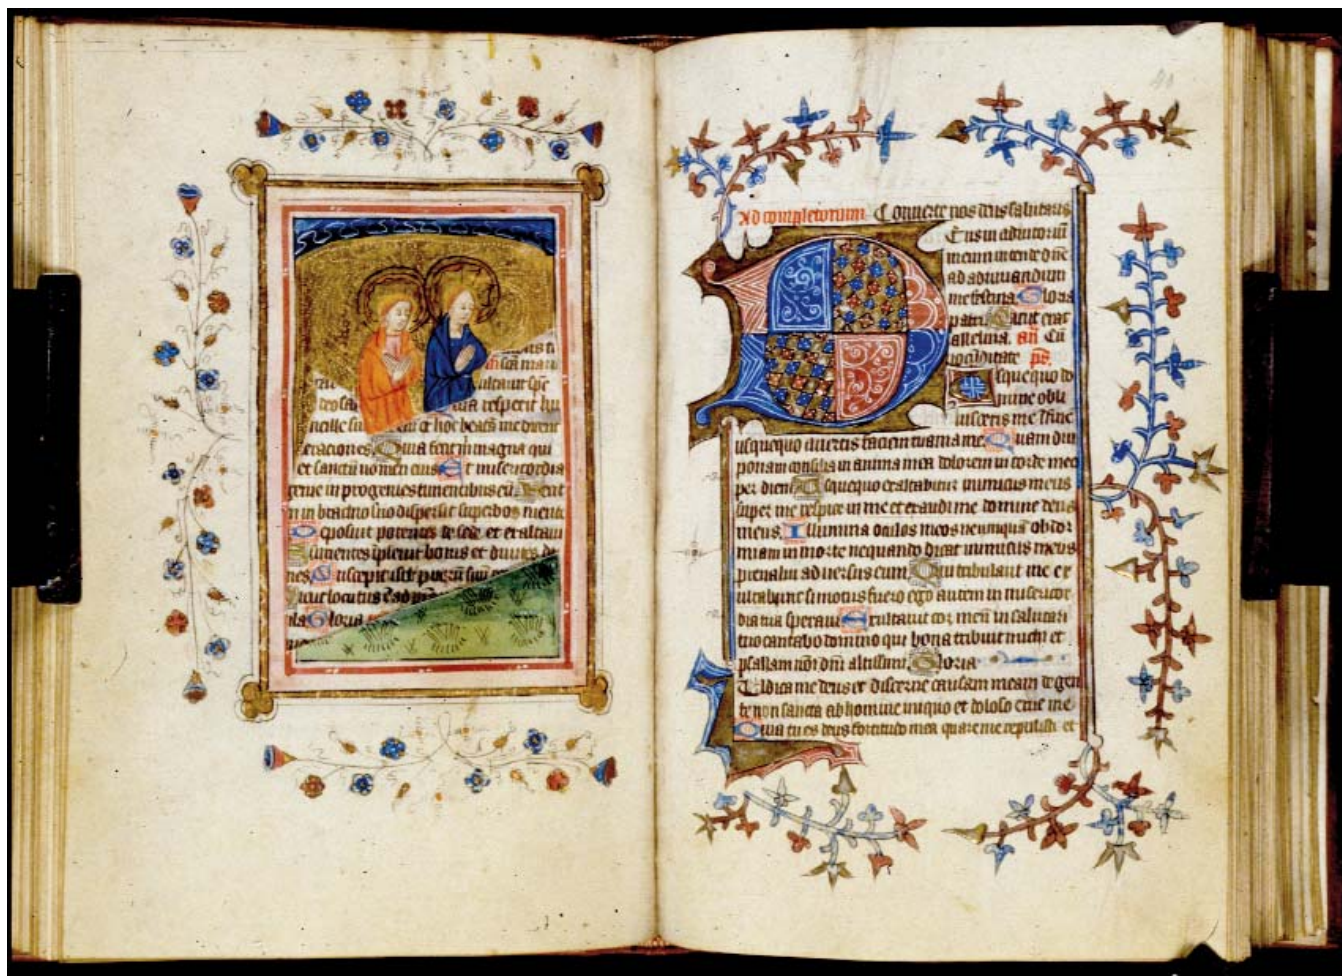 ultauit spe
deo sa uia respexit hu
ex hoc beata me dicent
Quia fecit magna qui
et sanctū nomen eius Et misericordia
genie in progenies timentibus eū Fecit
in brachio suo dispersit superbos mente
posuit potentes de sede et exaltauit
surientes ipleuit bonis et diuites di
nes Suscepit isrl puerū suū
Sicut locutus ē ad
la Gloria
Ad completorium Conuerte nos deus salutaris
Eus in adiutoriū
meum intende dn̄e
ad adiuuandum
me festina Gloria
patri Sicut erat
alleluia an Cū
iocūditate ps
Vsquequo do
mine obli
uisceris me
usquequo auertis faciem tuam a me Quam diu
ponam consilia in anima mea dolorem in corde meo
per diem Vsquequo exaltabitur inimicus meus
super me respice in me et exaudi me domine deus
meus Illumina oculos meos ne umquā obdor
miam in morte nequando dicat inimicus meus
preualui aduersus eum Qui tribulant me ex
ultabunt si motus fuero ego autem in misericor
dia tua speraui Exultauit cor meū in salutari
tuo cantabo domino qui bona tribuit michi et
psallam noī dn̄i altissimi Gloria
Vdica me deus et discerne causam meam de gen
te non sancta ab homine iniquo et doloso erue me
Quia tu es deus fortitudo mea quare me repulisti et